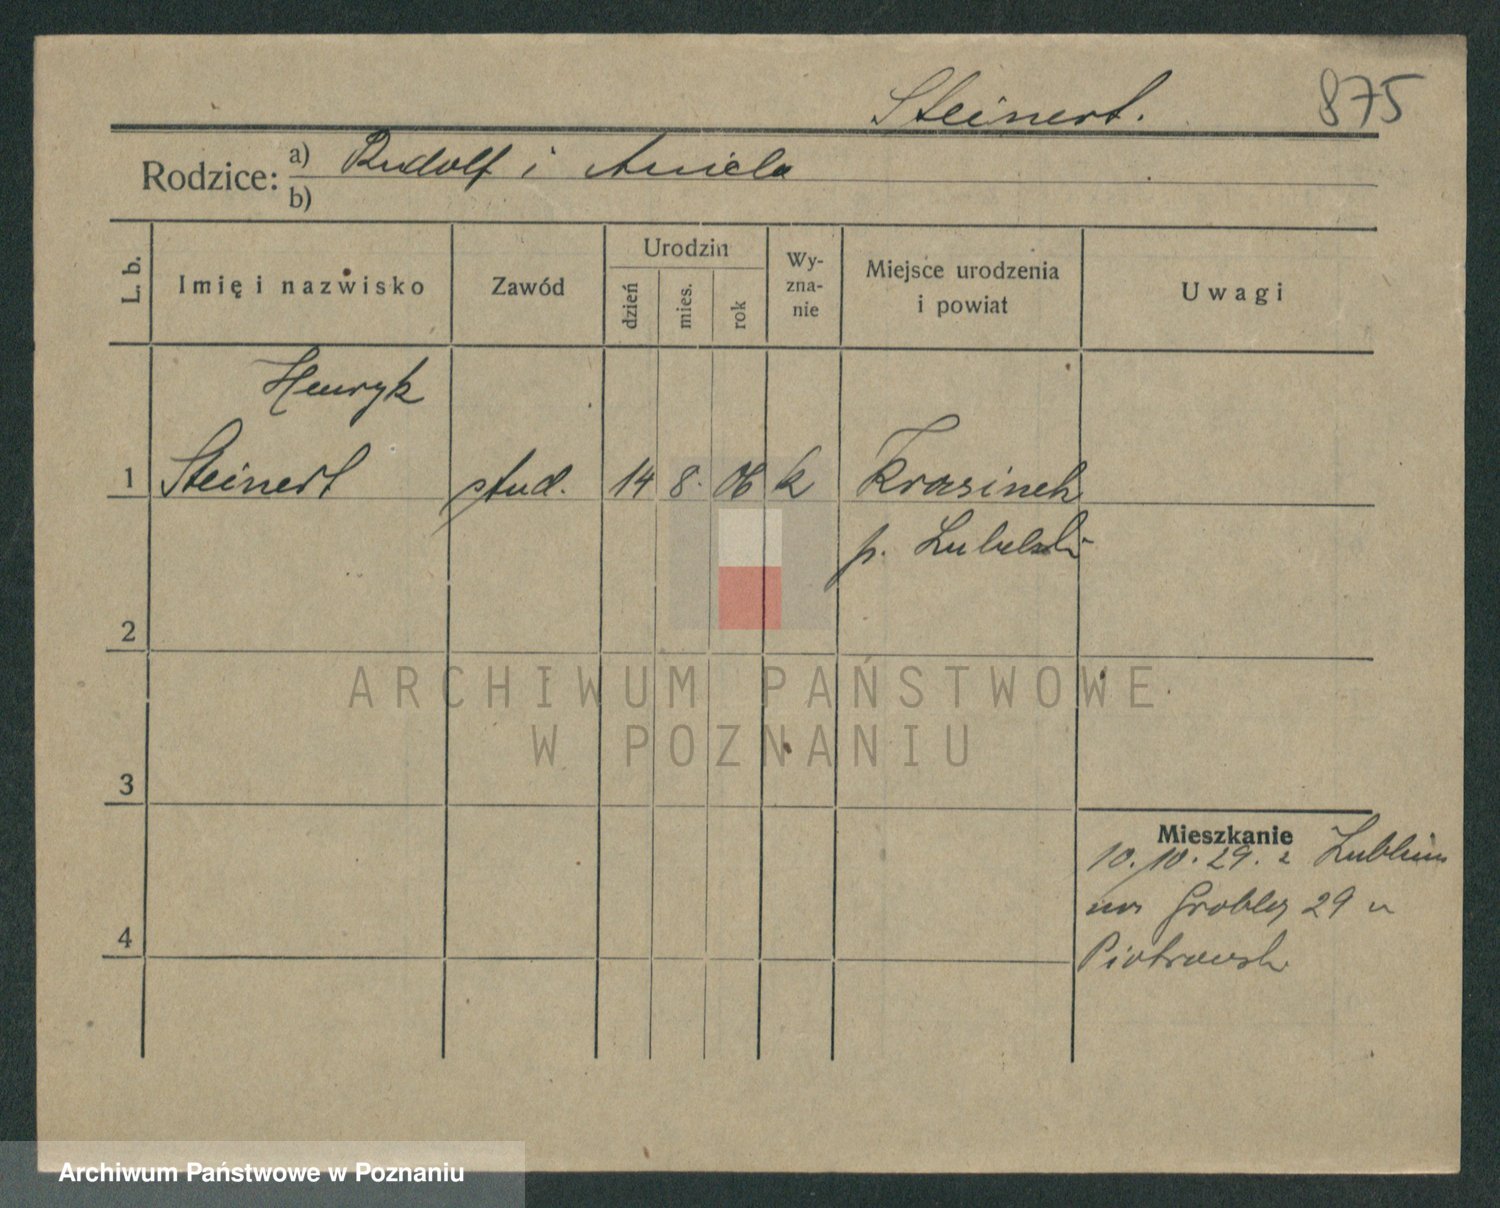 Steinert.
875
Rodzice:
a) Rudolf i Aniela
b)
L. b.
Imię i nazwisko
Zawód
Urodzin
dzień
mies.
rok
Wy-
zna-
nie
Miejsce urodzenia
i powiat
Uwagi
Henryk
1 Steinert stud. 14 8. 06 k Krasinek
p. Lubelski
2
3
4
Mieszkanie
10.10.29. z Lublina
na Grobla 29 u
ARCHIWUM PAŃSTWOWE
W POZNANIU
Archiwum Państwowe w Poznaniu